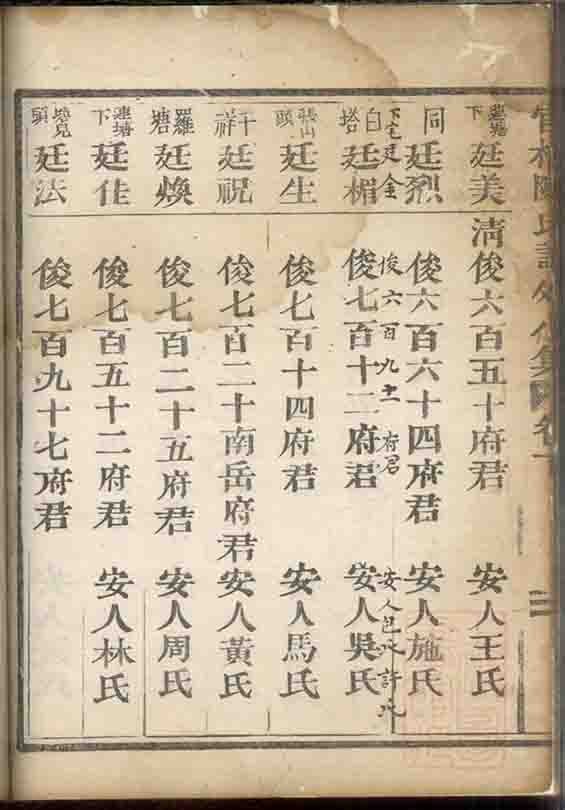 蓮塘下 廷美 清 俊六百五十府君 安人王氏
同 廷烈 俊六百六十四府君 安人施氏
下宅 廷金 俊六百九十一府君 安人包氏許氏
白塔 廷楣 俊七百十二府君 安人吳氏
張山頭 廷生 俊七百十四府君 安人馬氏
千祥 廷祝 俊七百二十南岳府君 安人黃氏
羅塘 廷煥 俊七百二十五府君 安人周氏
蓮塘下 廷佳 俊七百五十二府君 安人林氏
頭 廷法 俊七百九十七府君